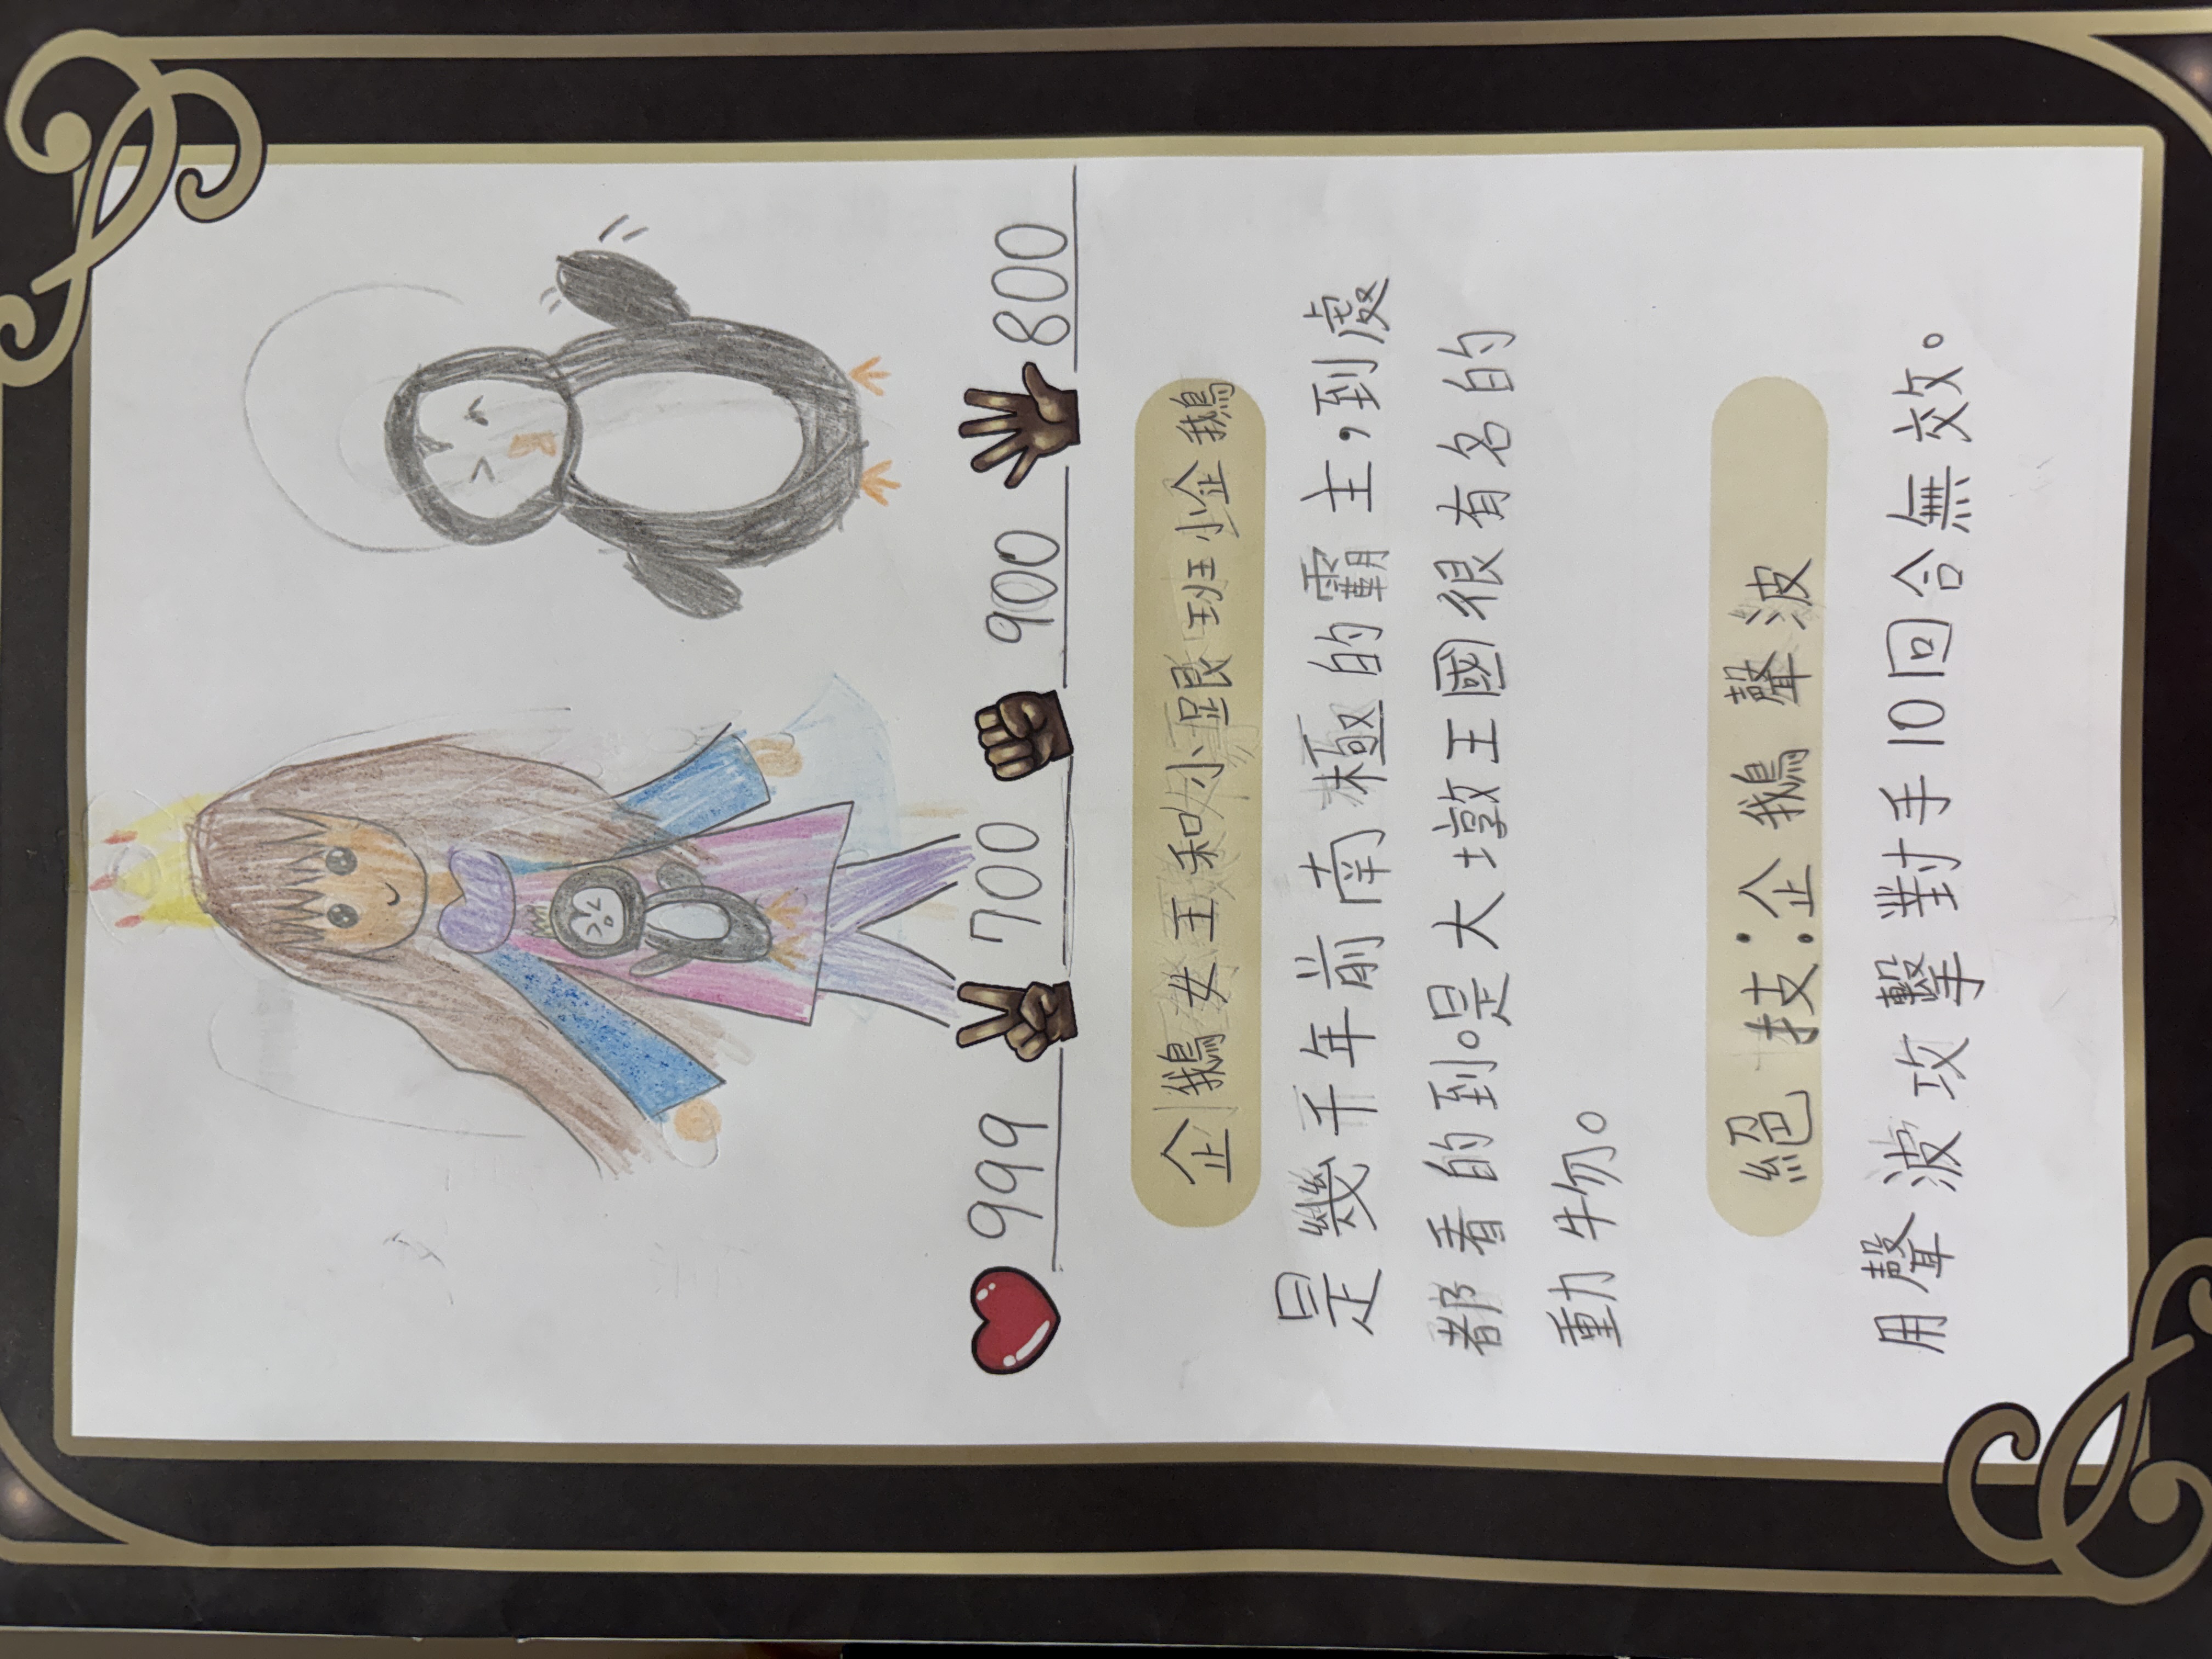 999 700 900 800
企鵝女王和小跟班小企鵝
是幾千年前南極的霸主,到處
都看的到。是大墩王國很有名的
動物。
絕技:企鵝聲波
用聲波攻擊對手10回合無效。